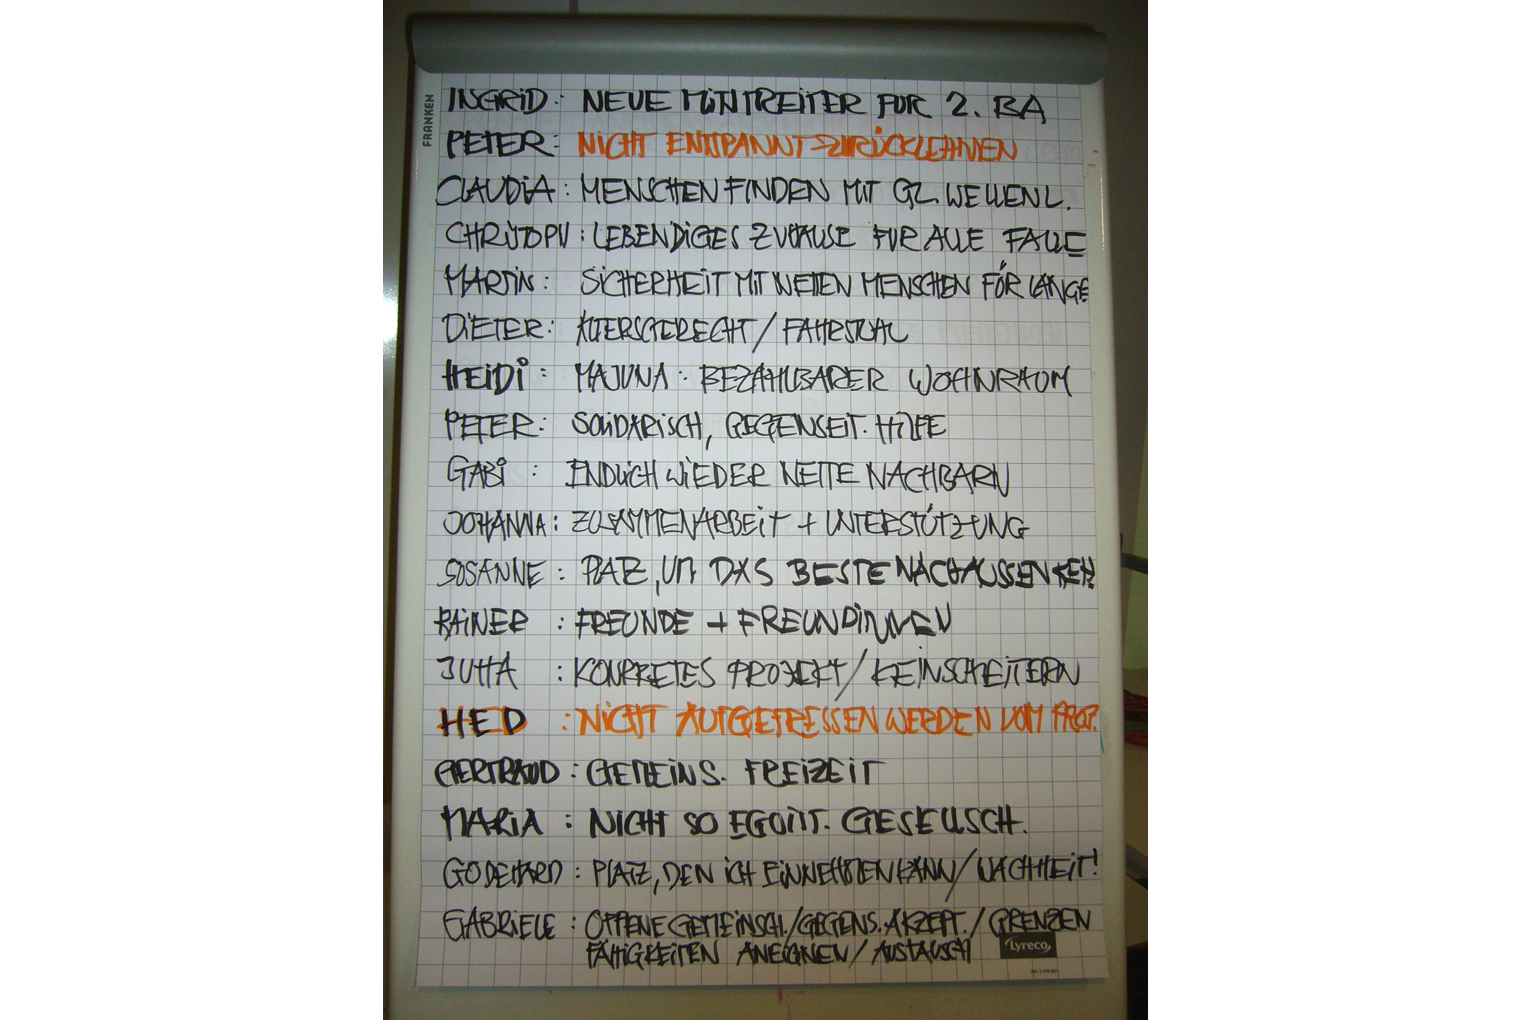 FRANKEN
INGRID: NEUE MITSTREITER FÜR 2. BA
PETER: NICHT ENTSPANNT ZURÜCKLEHNEN
CLAUDIA: MENSCHEN FINDEN MIT GL. WELLENL.
CHRISTOPH: LEBENDIGES ZUHAUSE FÜR ALLE FÄLLE
MARTIN: SICHERHEIT MIT NETTEN MENSCHEN FÖR LÄNGE
DIETER: ALTERSGERECHT / FAHRSTUHL
HEIDI: MAJUNA: BEZAHLBARER WOHNRAUM
PETER: SOLIDARISCH, GEGENSEIT. HILFE
GABI: ENDLICH WIEDER NETTE NACHBARN
JOHANNA: ZUSAMMENARBEIT + UNTERSTÜTZUNG
SUSANNE: PLATZ, UM DAS BESTE NACH AUSSEN KEH
RAINER: FREUNDE + FREUNDINNEN
JUTTA: KONKRETES PROJEKT / KEIN SCHEITERN
HED: NICHT AUFGEFRESSEN WERDEN VOM PROJ.
GERTRAUD: GEMEINS. FREIZEIT
MARIA: NICHT SO EGOIST. GESELLSCH.
GODEHARD: PLATZ, DEN ICH EINNEHMEN KANN / WACHHEIT!
GABRIELE: OFFENE GEMEINSCH. / GEGENS. AKZEPT. / GRENZEN
FÄHIGKEITEN ANEIGNEN / AUSTAUSCH
Lyreco